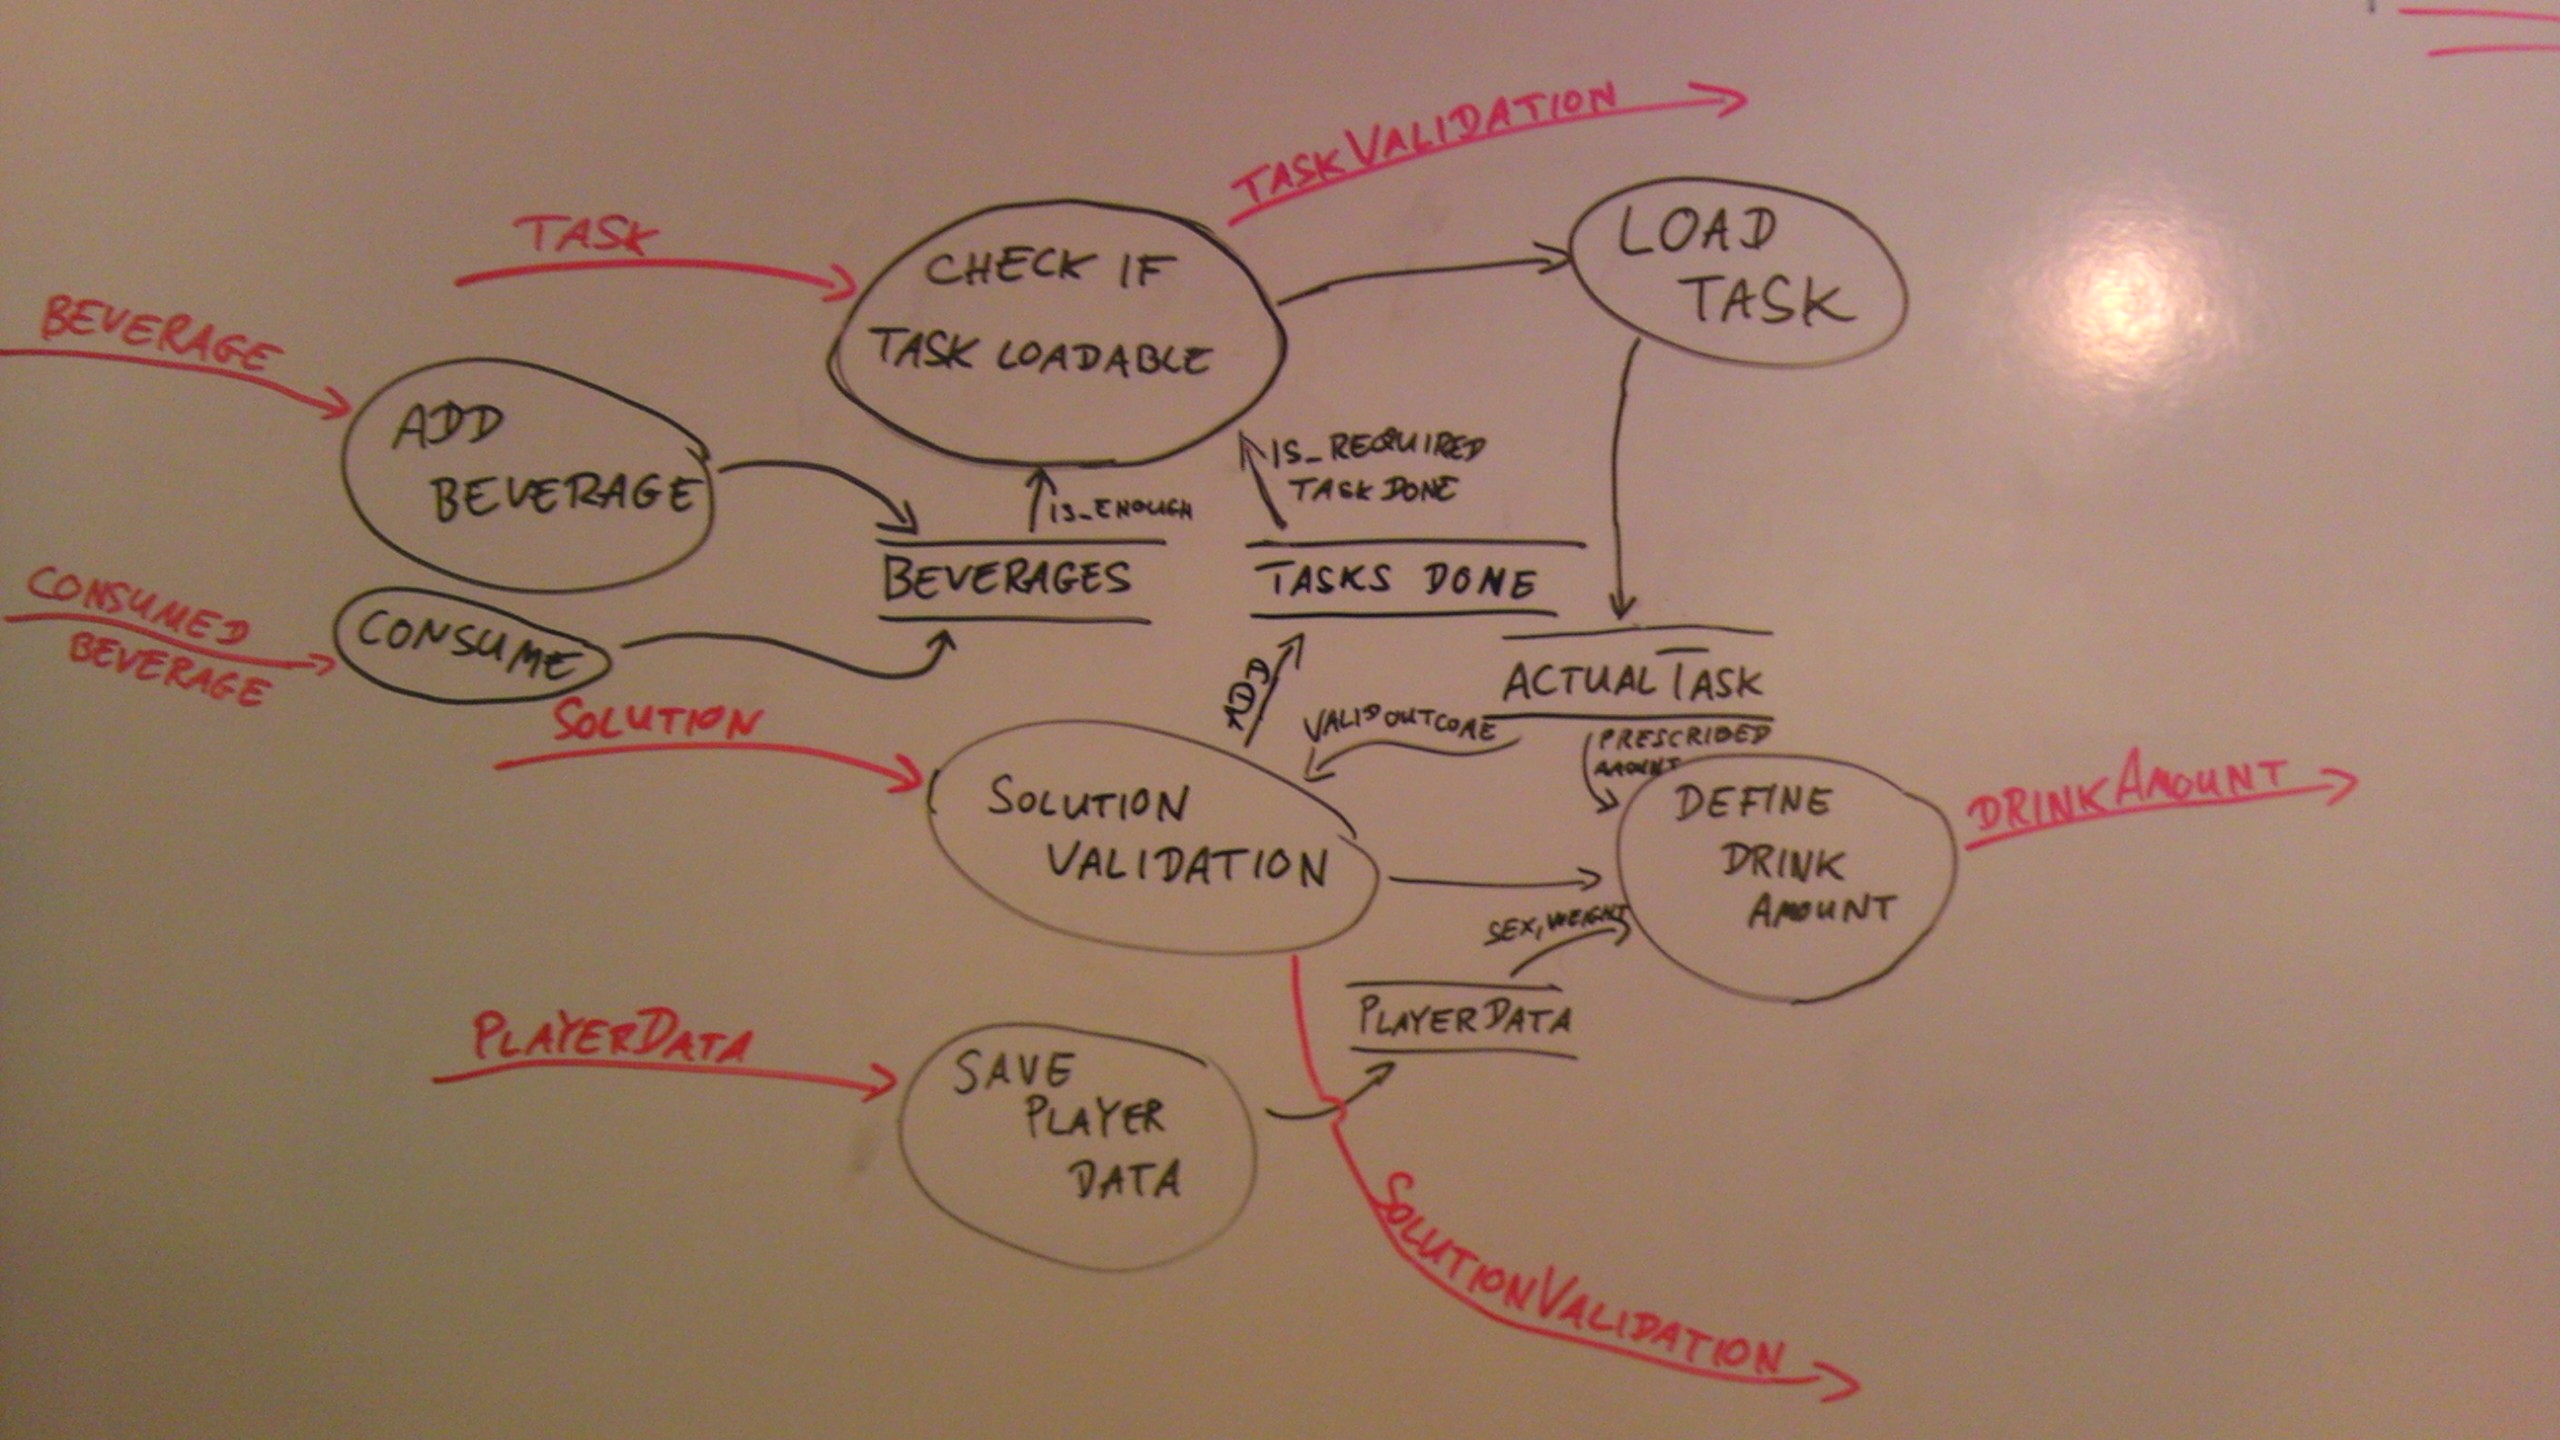 TASKVALIDATION
TASK
CHECK IF
TASK LOADABLE
LOAD
TASK
BEVERAGE
ADD
BEVERAGE
IS_ENOUGH
IS_REQUIRED
TASK DONE
BEVERAGES
TASKS DONE
CONSUMED
BEVERAGE
CONSUME
ACTUAL TASK
ADD
VALIDOUTCOME
PRESCRIBED
AMOUNT
SOLUTION
SOLUTION
VALIDATION
DEFINE
DRINK
AMOUNT
DRINKAMOUNT
SEX, WEIGHT
PLAYERDATA
PLAYERDATA
SAVE
PLAYER
DATA
SOLUTIONVALIDATION